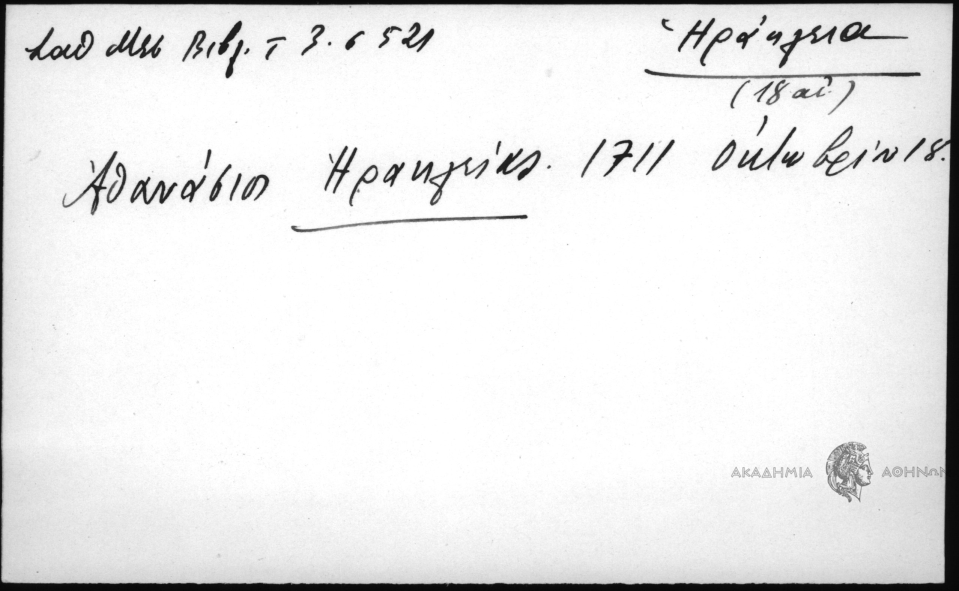 Σαθ Μεσ Βιβλ. Τ 3. σ 521
Ἡράκλεια
(18 αἰ.)
Ἀθανάσιος Ἡρακλείας. 1711 Ὀκτωβρίου 18.
ΑΚΑΔΗΜΙΑ ΑΘΗΝΩΝ